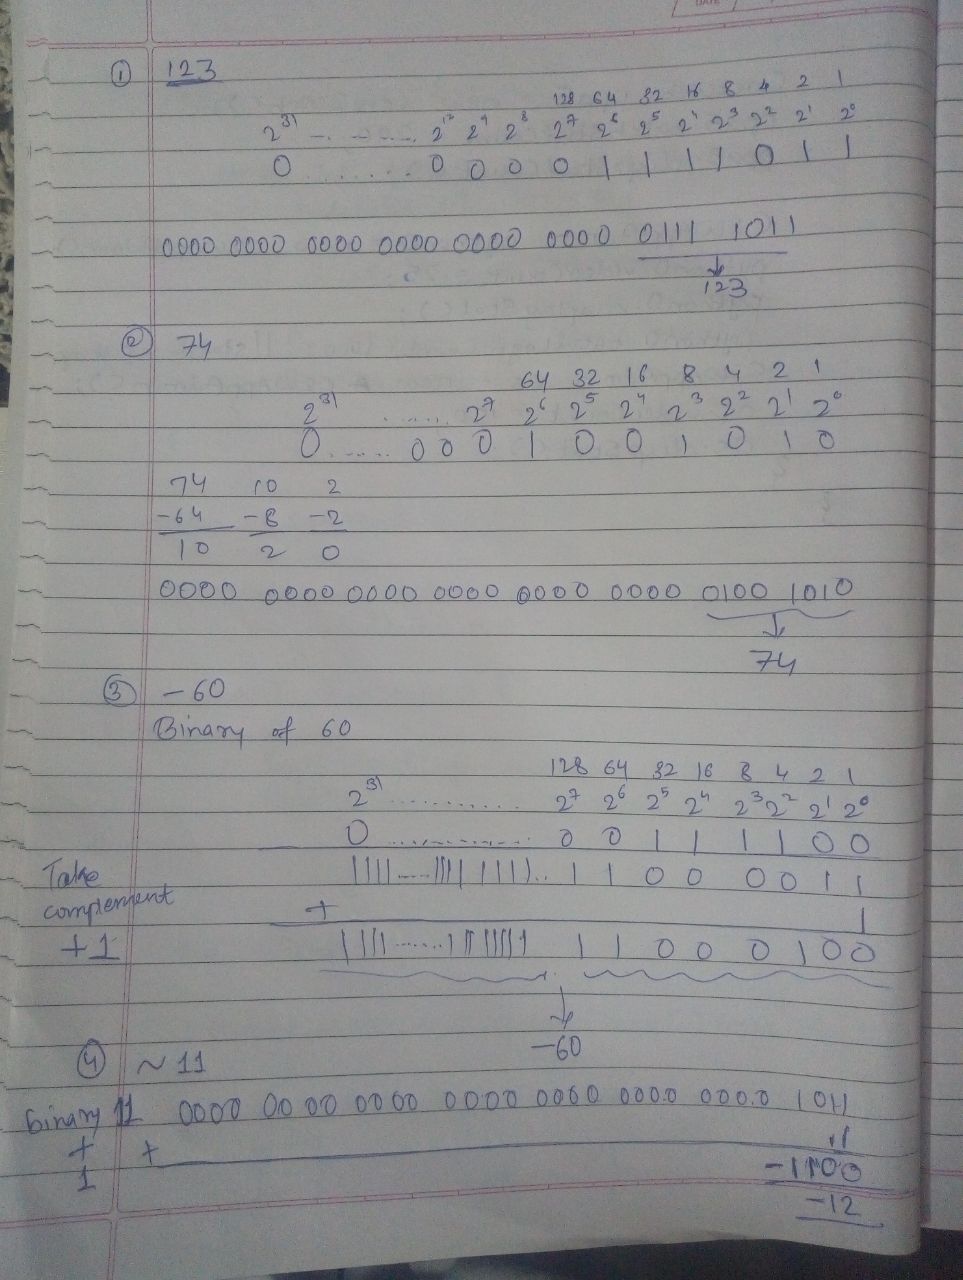 DATE
① 123
128 64 32 16 8 4 2 1
2³¹ ............ 2¹⁰ 2⁹ 2⁸ 2⁷ 2⁶ 2⁵ 2⁴ 2³ 2² 2¹ 2⁰
0 ....... 0 0 0 0 1 1 1 1 0 1 1
0000 0000 0000 0000 0000 0000 0111 1011
↓
123
② 74
64 32 16 8 4 2 1
2³¹ ...... 2⁷ 2⁶ 2⁵ 2⁴ 2³ 2² 2¹ 2⁰
0 ...... 0 0 0 1 0 0 1 0 1 0
74 10 2
-64 -8 -2
10 2 0
0000 0000 0000 0000 0000 0000 0100 1010
↓
74
③ -60
Binary of 60
128 64 32 16 8 4 2 1
2³¹ ............ 2⁷ 2⁶ 2⁵ 2⁴ 2³ 2² 2¹ 2⁰
0 ............ 0 0 1 1 1 1 0 0
Take 1111.....1111 1111.. 1 1 0 0 0 0 1 1
complement + 1
+1 1111.......111 11111 1 1 0 0 0 1 0 0
↓
-60
④ ~ 11
binary 11 0000 0000 0000 0000 0000 0000 0000 1011
+ +
1 -1100
-12